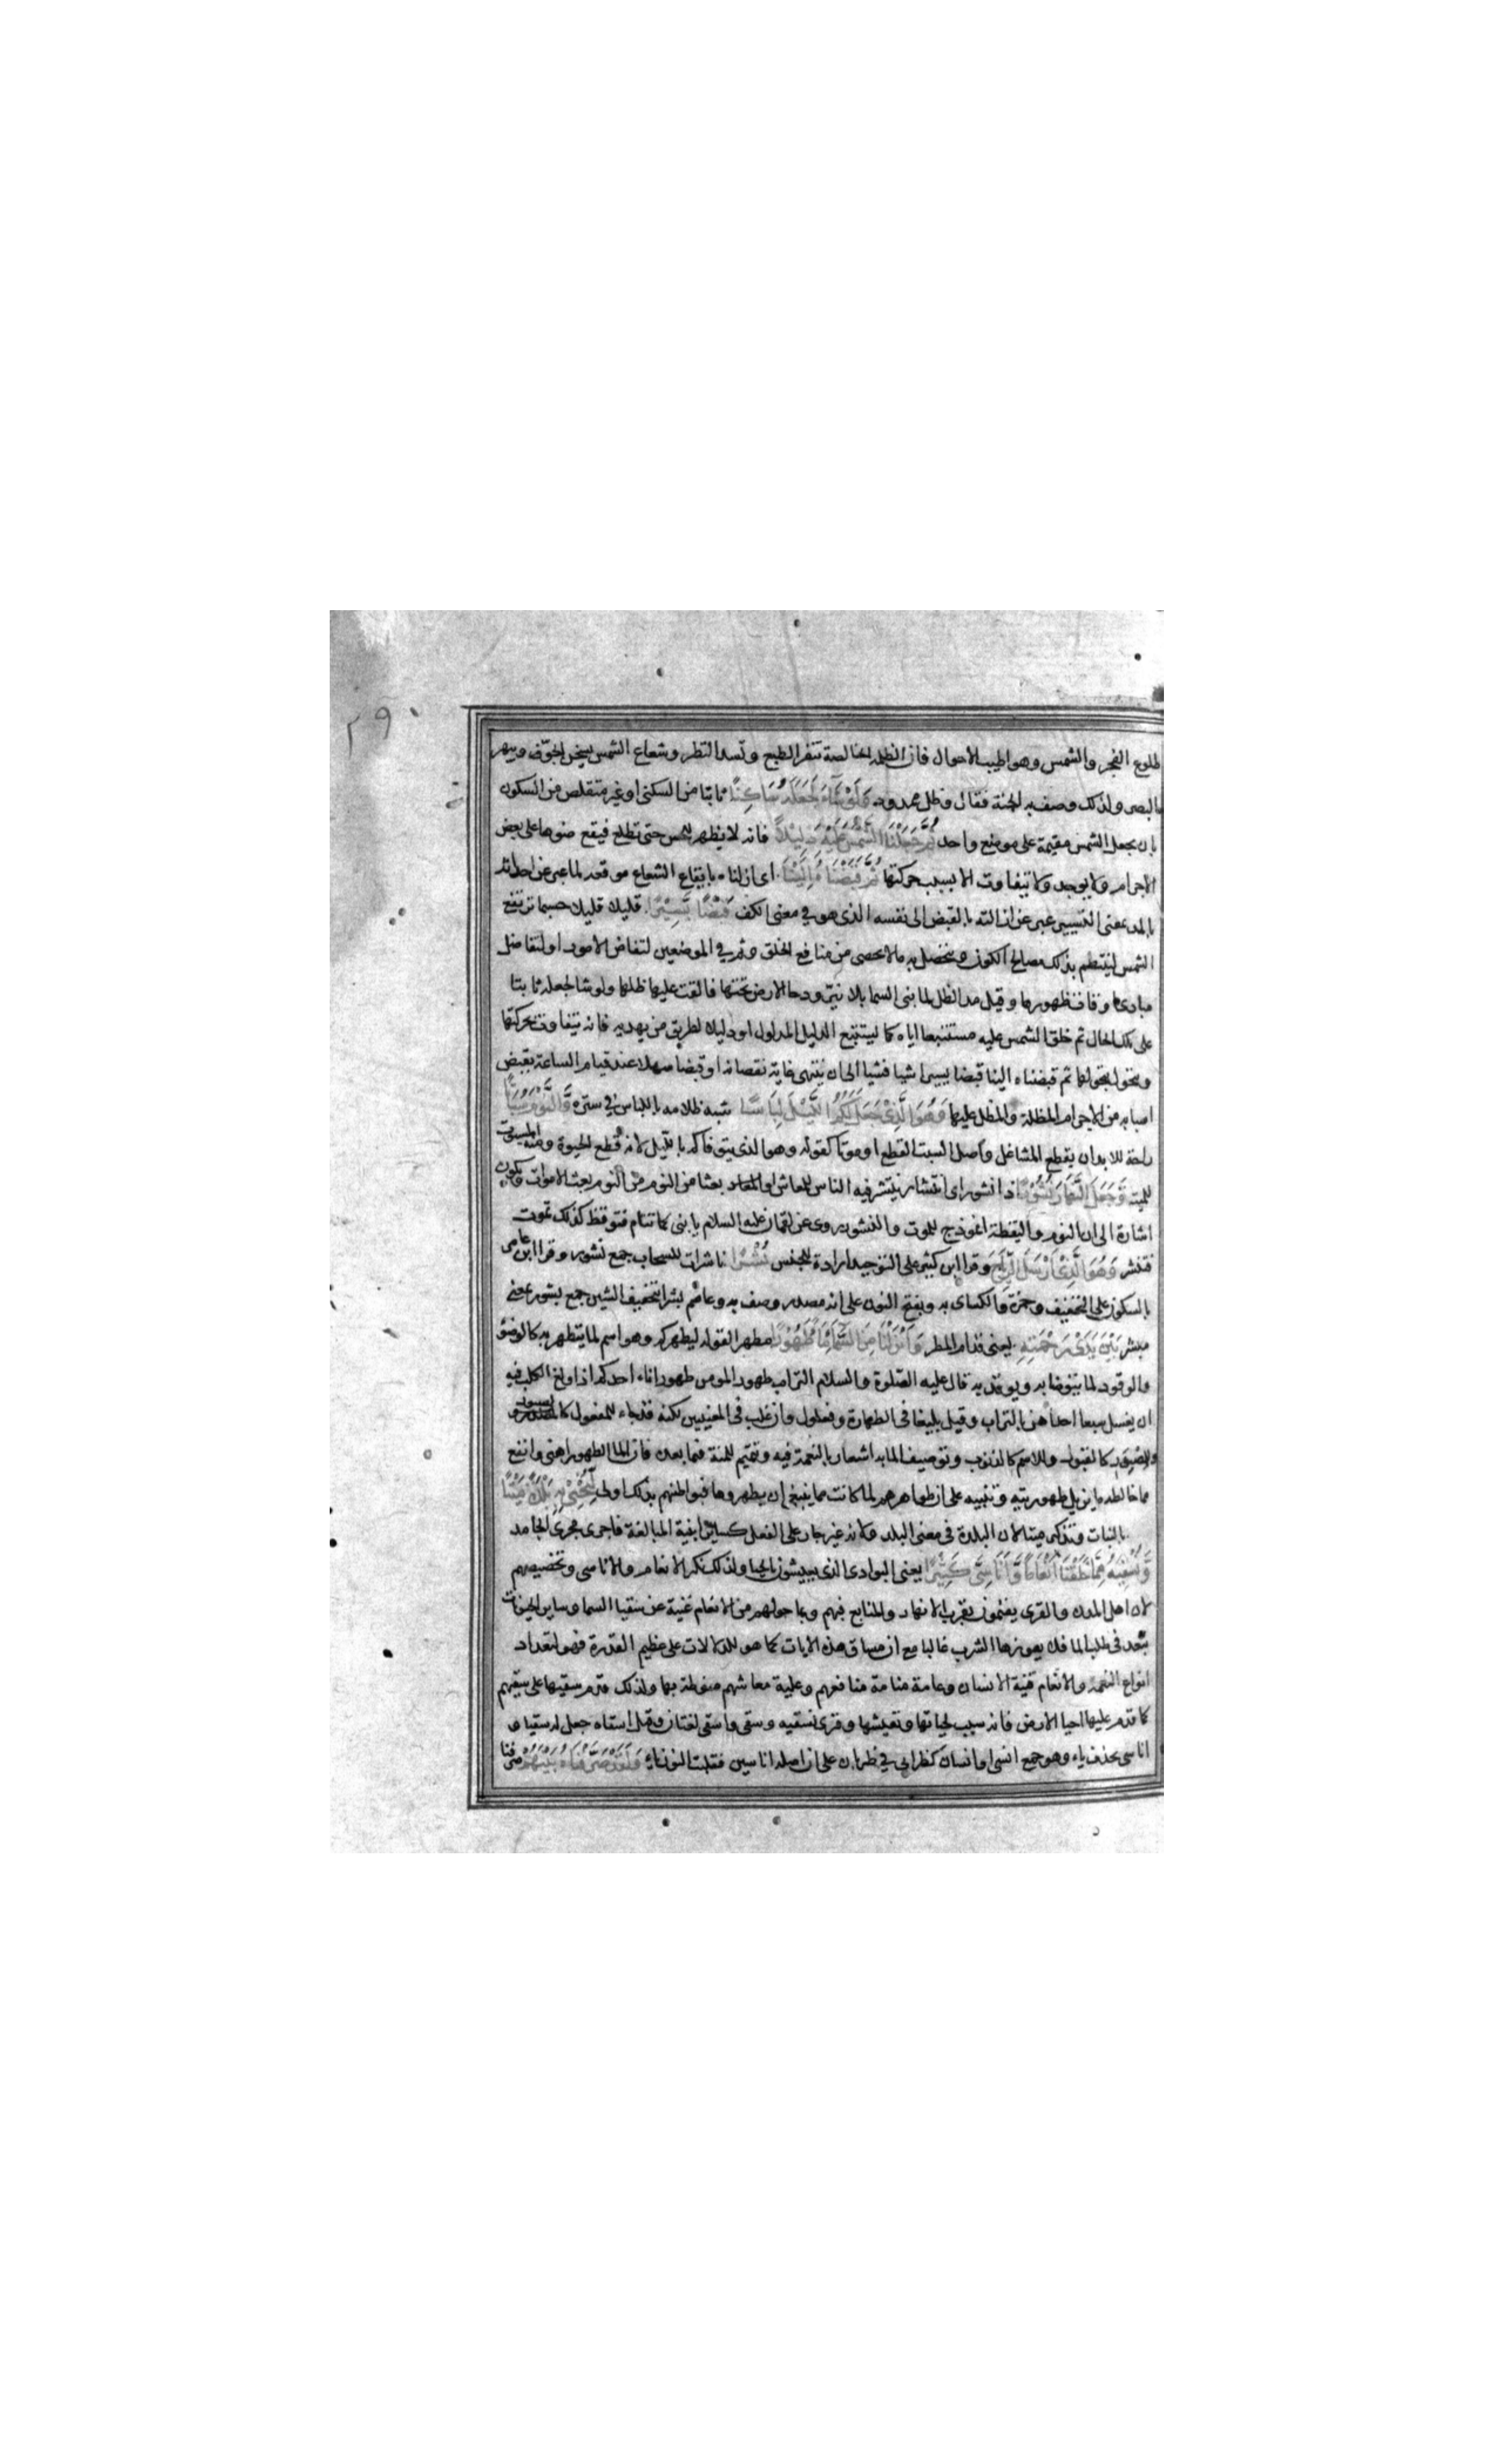 ٢٩٠
طلوع الفجر والشمس وهو اطيب الاحوال فان الظلمه الخالصة تنفر الطبع وتسد النظر وشعاع الشمس يسخن الجوّ ويبهر
البصر ولذلك وصف به الجنة فقال وظل ممدود وَلَوْ شَآءَ لَجَعَلَهُ سَاكِنًا ثابتا من السكنى او غير متقلص من السكون
بان يجعل الشمس مقيمة على موضع واحد ثُمَّ جَعَلْنَا الشَّمْسَ عَلَيْهِ دَلِيْلاً فانه لا يظهر للحس حتى تطلع فيقع ضوءها على بعض
الاجرام ولا يوجد ولا يتفاوت الا بسبب حركتها ثُمَّ قَبَضْنَاهُ اِلَيْنَا اى ازلناه بايقاع الشعاع موقعه لما عبر عن احداثه
بالمد بمعنى التسيير عبر عن ازالته بالقبض الى نفسه الذى هو فى معنى الكف قَبْضًا يَسِيْرًا قليلا قليلا حسبما ترتفع
الشمس لينتظم بذلك مصالح الكون ويتحصل به ما لا يحصى من منافع الخلق وثم فى الموضعين لتفاضل الامور او لتفاضل
مبادى اوقات ظهورها وقيل مد الظل لما بنى السما بلا نيّر ودحا الارض تحتها فالقت عليها ظلها ولو شا لجعله ثابتا
على تلك الحال ثم خلق الشمس عليه مستتبعا اياه كما يستتبع الدليل المدلول او دليلا لطريق من يهديه فانه يتفاوت بحركتها
ويتحول بتحولها ثم قبضناه الينا قبضا يسيرا شيا فشيا الى ان ينتهى غاية نقصانه او قبضا سهلا عند قيام الساعة بقبض
اسبابه من الاجرام المظلة والمظل عليها وَهُوَ الَّذِىْ جَعَلَ لَكُمُ الَّيْلَ لِبَاسًا شبه ظلامه باللباس فى ستره وَّالنَّوْمَ سُبَاتًا
راحة للابدان بقطع المشاغل واصل السبت القطع او موتا كقوله وهو الذى يتوفاكم بالليل لانه قطع الحيوة ومنه المسبوت
للميت وَّجَعَلَ النَّهَارَ نُشُوْرًا ذا نشور اى انتشار ينتشر فيه الناس للمعاش او بعثا من النوم بعث الاموات ويكون
اشارة الى ان النوم واليقظة انموذج للموت والنشور وروى عن لقمان عليه السلام يا بنى كما تنام فتوقظ كذلك تموت
فتنشر وَهُوَ الَّذِىْ اَرْسَلَ الرِّيٰحَ وقرا ابن كثير على التوحيد ارادة للجنس نُشُرًا ناشرات للسحاب جمع نشور وقرا ابن عامر
بالسكون على التخفيف وحمزة والكساى به وبفتح النون على انه مصدر وصف به وعاصم بشرا تخفيف الشين جمع بشور بمعنى
مبشر بَيْنَ يَدَىْ رَحْمَتِهٖ يعنى قدام المطر وَاَنْزَلْنَا مِنَ السَّمَآءِ مَآءً طَهُوْرًا مطهرا لقوله ليطهركم وهو اسم لما يتطهر به كالوضوء
والوقود لما يتوضا به ويوقد به قال عليه الصلوة والسلام التراب طهور المومن طهور اناء احدكم اذا ولغ الكلب فيه
ان يغسل سبعا احداهن بالتراب وقيل بليغا فى الطهارة وفعول وان غلب فى المعنيين لكنه قد جاء للمفعول
كالقبول وللاسم كالذنوب وتوصيف الما به اشعار بالنعمة فيه وتتميم للمنة فيما بعده فان الما الطهور اهنى وانفع
مما خالطه ما يزيل طهوريته وتنبيه على ان ظواهرهم لما كانت مما ينبغى ان يطهروها فبواطنهم بذلك اولى لِّنُحْيِىَ بِهٖ بَلْدَةً مَّيْتًا
بالنبات وتذكير ميتا لان البلدة فى معنى البلد ولانه غير جار على الفعل كساير ابنية المبالغة فاجرى مجرى الجامد
وَّنُسْقِيَهٗ مِمَّا خَلَقْنَا اَنْعَامًا وَّاَنَاسِىَّ كَثِيْرًا يعنى البوادى الذى يعيشون بالحيا ولذلك نكر الانعام والاناسى وتخصيصهم
لان اهل المدن والقرى يقيمون بقرب الانهار والمنابع فبهم وبما حولهم من الانعام غنية عن سقيا السما وساير الحيونات
تبعد فى طلب الما فلا يعوزها الشرب غالبا مع ان مساق هذه الايات كما هو للدلالات على عظيم القدرة فهو لتعداد
انواع النعمة والانعام قنية الانسان وعامة منافعهم وعلية معاشهم منوطة بها ولذلك قدم سقيها على سقيهم
كما قدم عليها احيا الارض فانه سبب لحياتها وتعيشها وقرى نسقيه وسقى واسقى لغتان وقيل اسقاه جعل له سقيا و
اناسى بحذف ياء وهو جمع انسى او انسان كظرابى فى ظربان على ان اصله اناسين فقلبت النون ياء وَلَقَدْ صَرَّفْنَاهُ بَيْنَهُمْ صرفنا